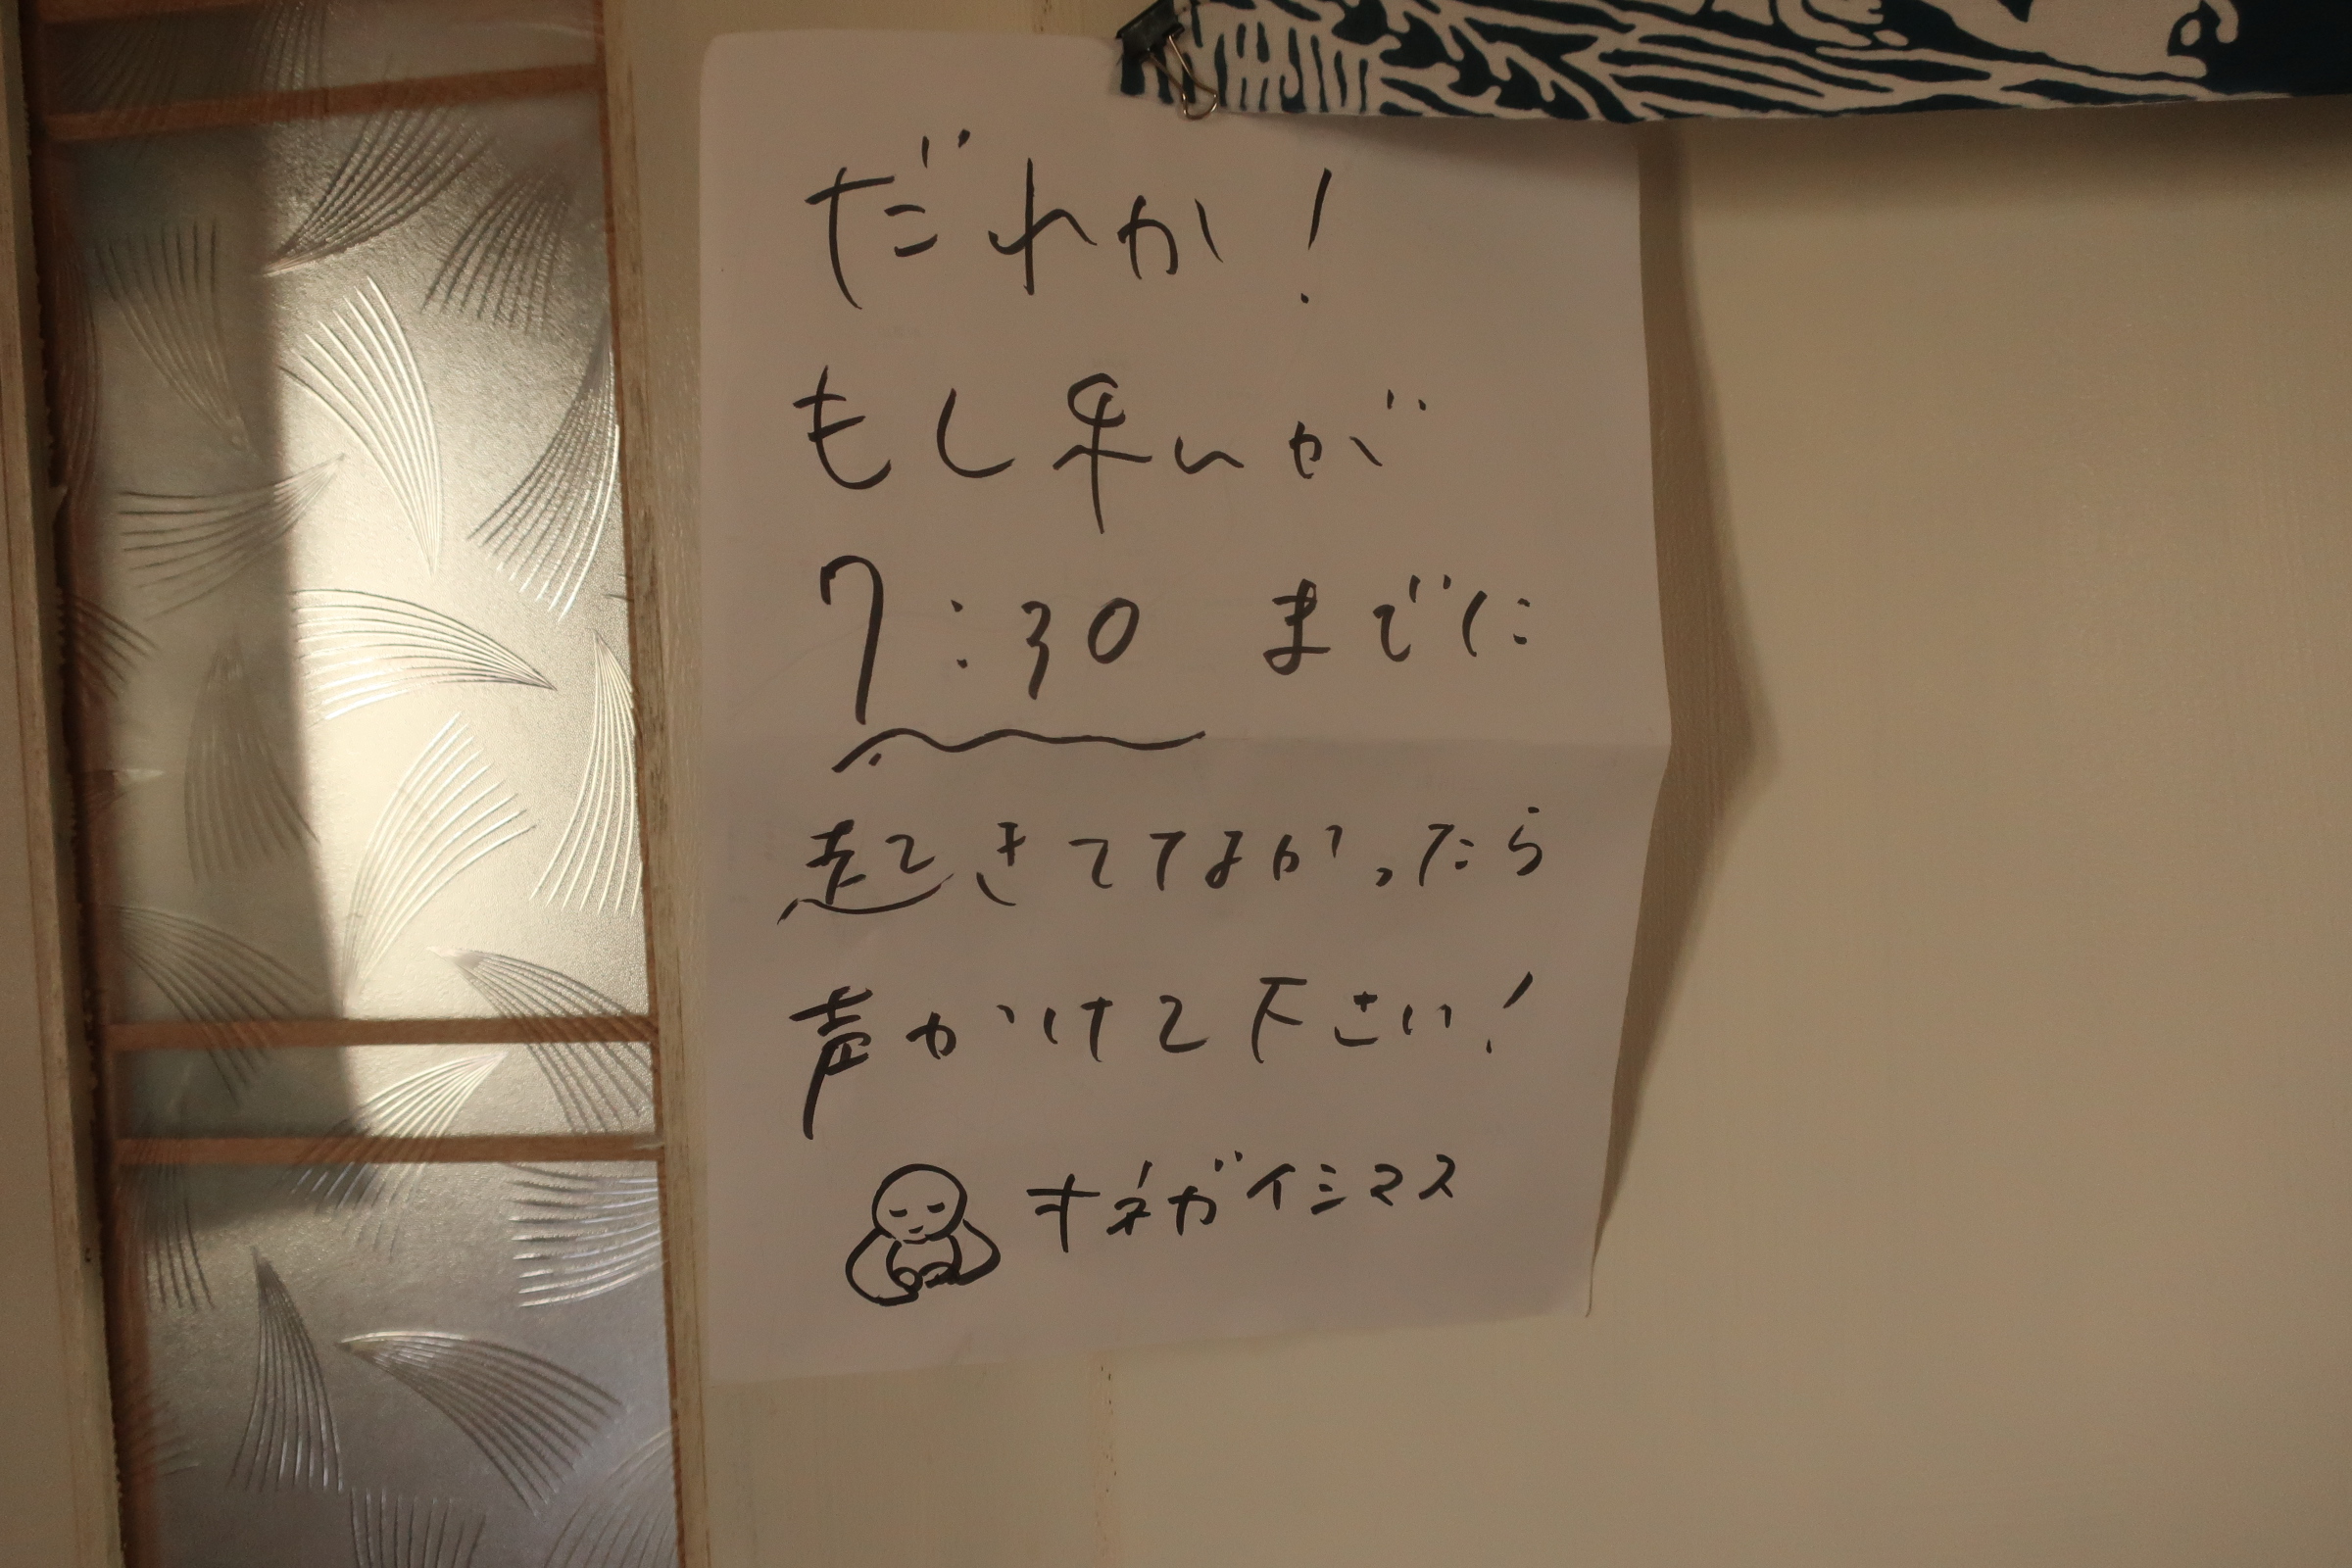 だれか!
もし早いが
7:30 までに
起きててなかったら
声かけて下さい!
オネガイシマス